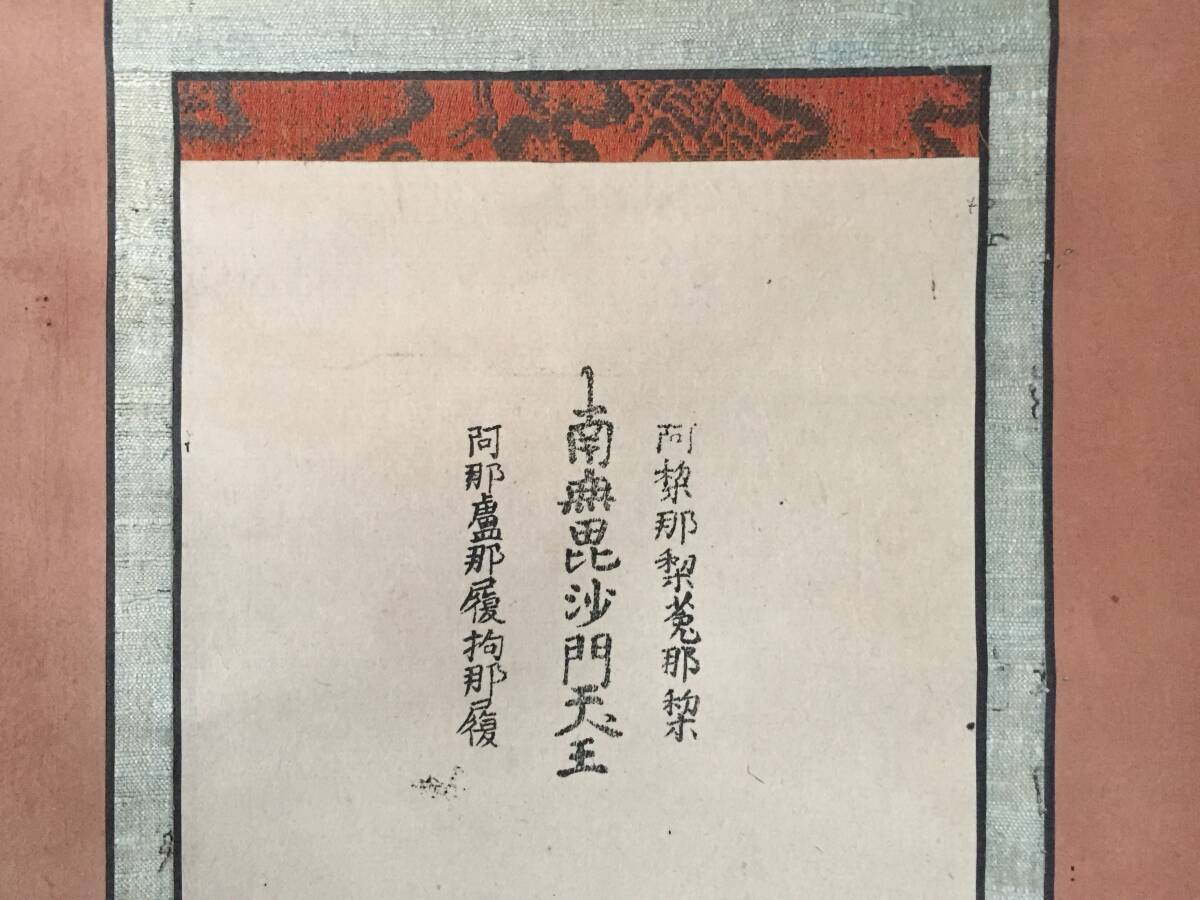 阿棃那棃菟那棃
南無毘沙門天王
阿那盧那履拘那履